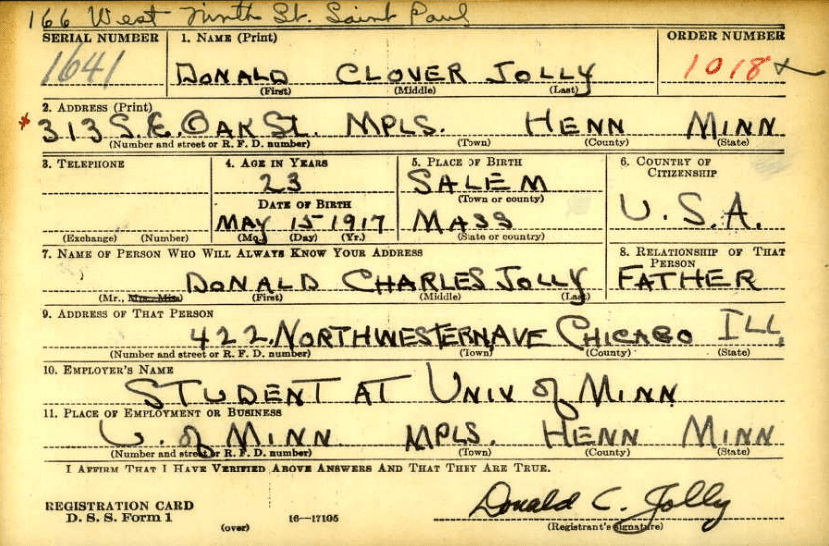 166 West Ninth St. Saint Paul
SERIAL NUMBER 1. NAME (Print) ORDER NUMBER
1641 DONALD CLOVER JOLLY 1018
(First) (Middle) (Last)
2. ADDRESS (Print)
* 313 S.E. OAK St. MPLS. HENN MINN
(Number and street or R. F. D. number) (Town) (County) (State)
3. TELEPHONE 4. AGE IN YEARS 5. PLACE OF BIRTH 6. COUNTRY OF CITIZENSHIP
23 SALEM
(Town or county)
DATE OF BIRTH U.S.A.
MAY 15 1917 MASS
(Exchange) (Number) (Mo.) (Day) (Yr.) (State or country)
7. NAME OF PERSON WHO WILL ALWAYS KNOW YOUR ADDRESS 8. RELATIONSHIP OF THAT PERSON
DONALD CHARLES JOLLY FATHER
(Mr., Mrs., Miss) (First) (Middle) (Last)
9. ADDRESS OF THAT PERSON
422 NORTHWESTERN AVE CHICAGO ILL
(Number and street or R. F. D. number) (Town) (County) (State)
10. EMPLOYER'S NAME
STUDENT AT UNIV of MINN
11. PLACE OF EMPLOYMENT OR BUSINESS
U. of MINN MPLS. HENN MINN
(Number and street or R. F. D. number) (Town) (County) (State)
I AFFIRM THAT I HAVE VERIFIED ABOVE ANSWERS AND THAT THEY ARE TRUE.
Donald C. Jolly
REGISTRATION CARD
D. S. S. Form 1 (over) 16—17105 (Registrant's signature)